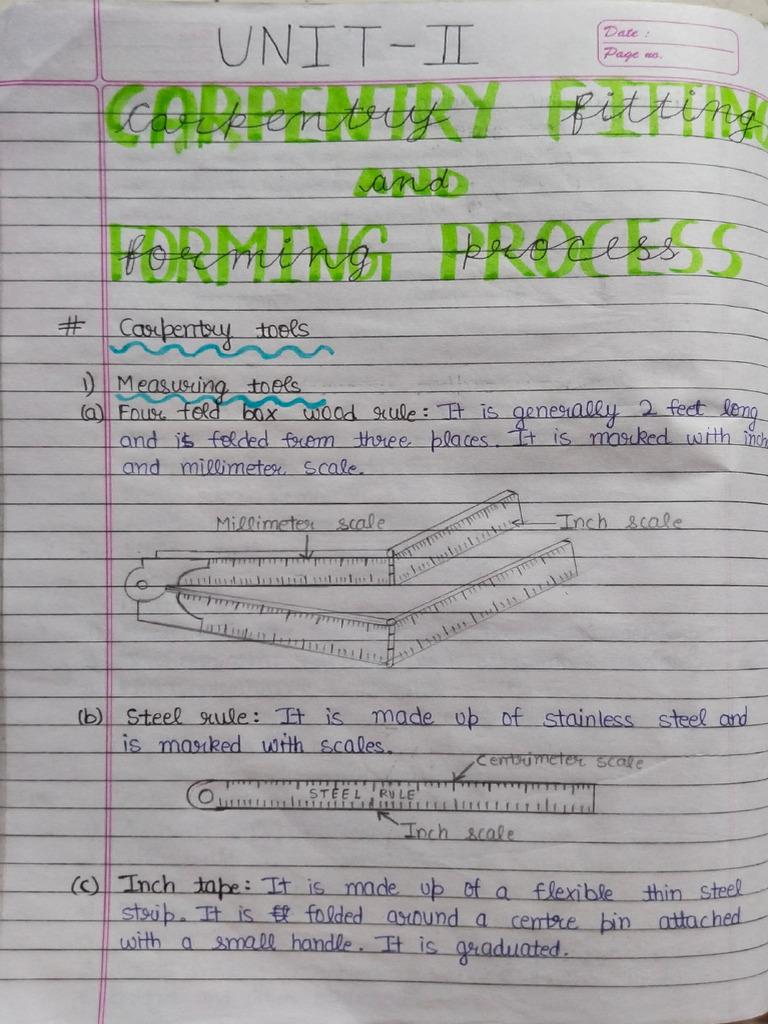 UNIT-II
Date :
Page no.
CARPENTRY FITTING
Carpentry fitting
AND
and
FORMING PROCESS
forming process
# Carpentry tools
1) Measuring tools
(a) Four fold box wood rule: It is generally 2 feet long
and is folded from three places. It is marked with inch
and millimeter scale.
Millimeter scale
Inch scale
(b) Steel rule: It is made up of stainless steel and
is marked with scales.
Centimeter scale
STEEL RULE
Inch scale
(c) Inch tape: It is made up of a flexible thin steel
strip. It is folded around a centre pin attached
with a small handle. It is graduated.